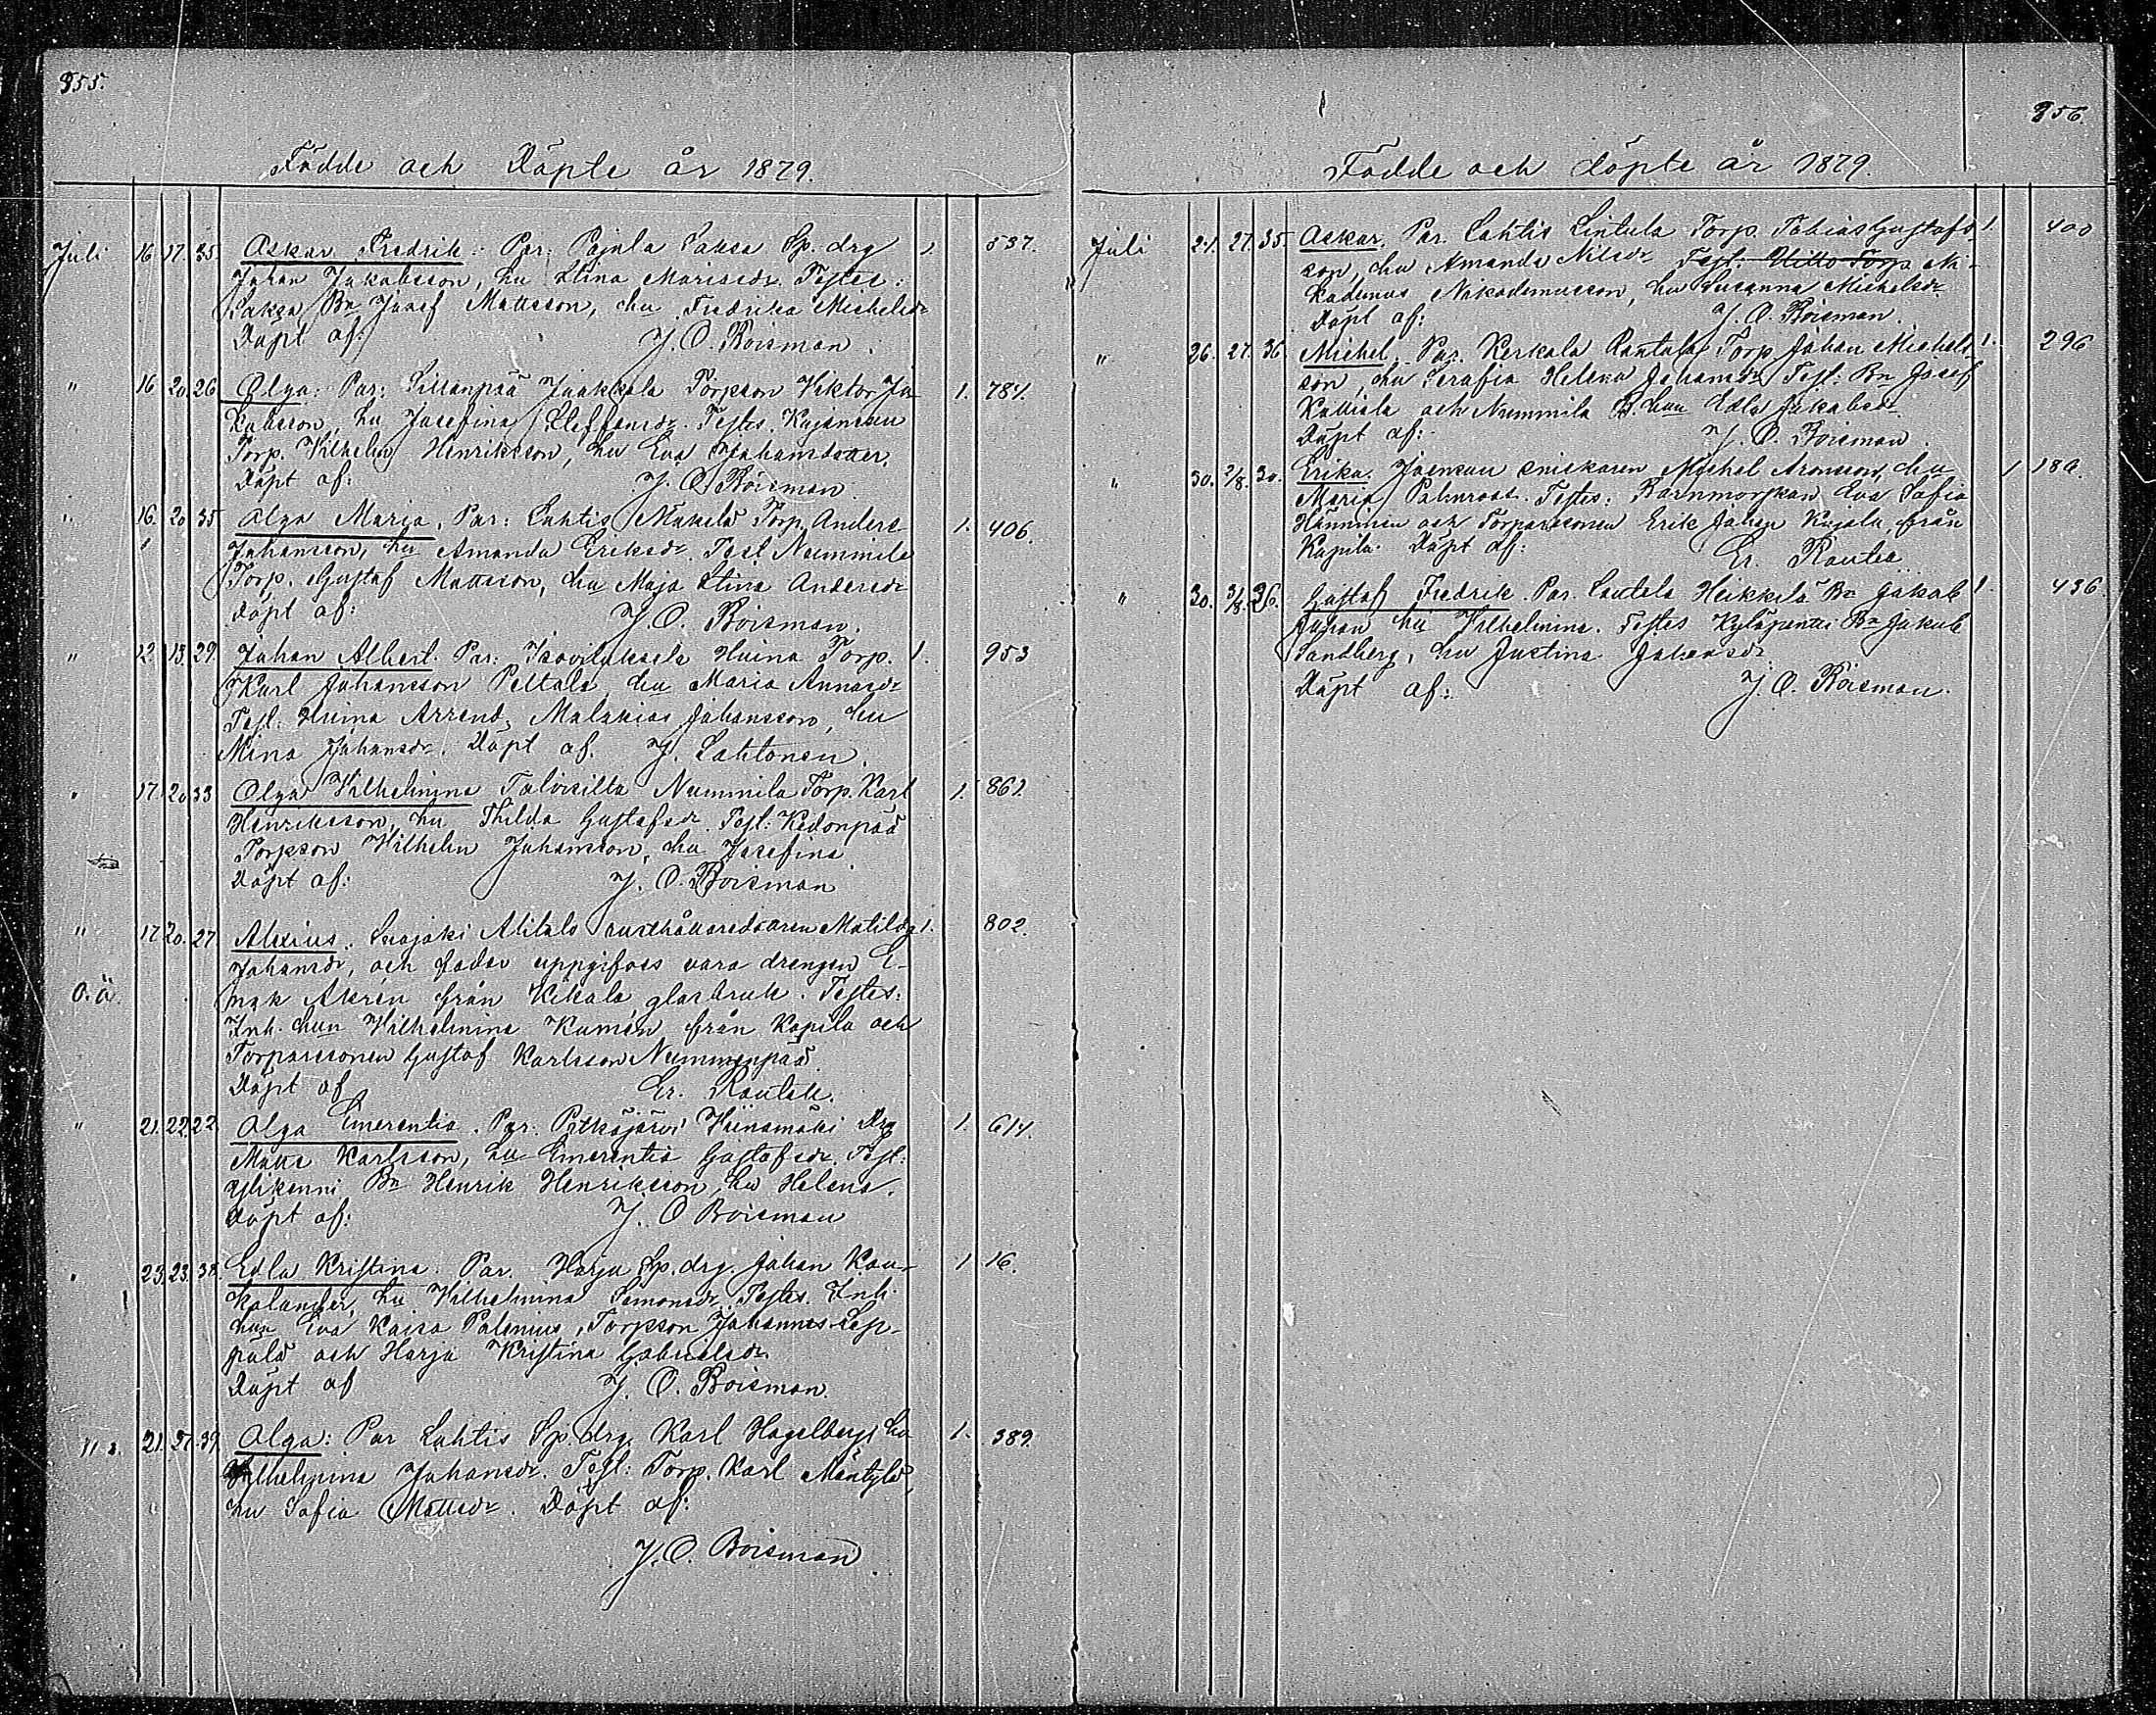 355.
Födde och Döpte år 1879.
Juli 16. 17. 35. Oskar Fredrik: Par: Pajula Saksa Sp. drg 1. 537.
Johan Jakobsson, hu Stina Mariasdr. Testes:
Saksa Bn Josef Mattsson, hu Fredrika Michelsdr
Döpt af: J. O. Boisman.
" 16 20. 26 Olga: Par: Sillanpää Jaakkola Torpson Viktor Ja- 1. 784.
kobsson, hu Josefina Steffansdr. Testes. Kujansuu
Torp. Vilhelm Henriksson, hu Eva Johansdotter.
Döpt af: J. O. Boisman.
" 16. 20 35 Olga Maria, Par: Lahtis Mäkelä Torp. Anders 1. 406.
Johansson, hu Amanda Eriksdr. Test. Nummila
Torp. Gustaf Mattsson, hu Maja Stina Andersdr
Döpt af: J. O. Boisman.
" 12. 13. 29. Johan Albert. Par: Isoviluksela Huina Torp. 1. 953
Karl Johansson Peltala, hu Maria Annasdr
Test: Huina Arrend. Malakias Johansson, hu
Mina Johansdr. Döpt af. J. Lahtonen.
" 17. 20 33 Olga Vilhelmina Talvisilta Nummila Torp. Karl 1. 862.
Henriksson, hu Thilda Gustafsdr. Test: Kedonpää
Torpson Vilhelm Johansson, hu Josefina
Döpt af: J. O. Boisman
" 17 20. 27 Alexius. Susojoki Alitalo Matilda 1. 802.
Johansdr, och fader uppgifves vara drengen E-
O. ä. Akrén från Kikala glasbruk. Testes:
Inh. hun Vilhelmina Kumén från Kopila och
Torparesonen Gustaf Karlsson Nummenpää.
Döpt af Er. Rautell.
" 21. 22. 22 Olga Emerentia. Par: Pitkäjärvi Viinamäki Drg 1. 614.
Matts Karlsson, hu Emerentia Gustafsdr. Test:
Ylikenni Bn Henrik Henriksson, hu Helena.
Döpt af: J. O Boisman
" 23. 23. 38. Edla Kristina. Par. Harju Sp. drg. Johan Kau- 1 16.
kolander, hu Vilhelmina Simonsdr. Testes. Inh.
hun Eva Kaisa Palenius, Torpson Johannes Lep-
pälä och Harju Kristina Gabrielsdr
Döpt af J. O. Boisman.
21. 27. 39. Olga: Par Lahtis Sp. drg. Karl Hagelberg, hu 1. 389.
Vilhelmina Johansdr. Test: Torp. Karl Mäntylä,
hu Sofia Mattsdr. Döpt af:
J. O. Boisman
356.
Födde och döpte år 1879.
Juli 24. 27. 35 Oskar. Par. Lahtis Lintula Torp. Tobias Gustafs- 1. 400
son, hu Amanda Nilsdr Test. Ditto Torp Ni-
kodemus Nikodemusson, hu Susanna Michelsdr.
Döpt af: J. O. Boisman.
" 26. 27. 36 Michel. Par. Kerkola Rantala Torp. Johan Michels- 1. 296
son, hu Serafia Helena Johansdr Test: Bn Josef
Kalliala och Nummila B. hun Edla Jakobsdr
Döpt af: J. O. Boisman.
" 30. 2/8. 30. Erika. Joensuu snickaren Michel Aronsson, hu 1 186.
Maria Palmroos. Testes: Barnmorskan Eva Sofia
Hänninen och Torparesonen Erik Johan Kujala från
Kopila. Döpt af: Er. Rautell
" 30. 3/8. 26. Gustaf Fredrik. Par. Lautela Heikkilä Bn Jakob 1. 436
Johan hu Vilhelmina. Testes Kyläpentti Bn Jakob
Sandberg, hu Justina Johansdr
Döpt af: J. O. Boisman.